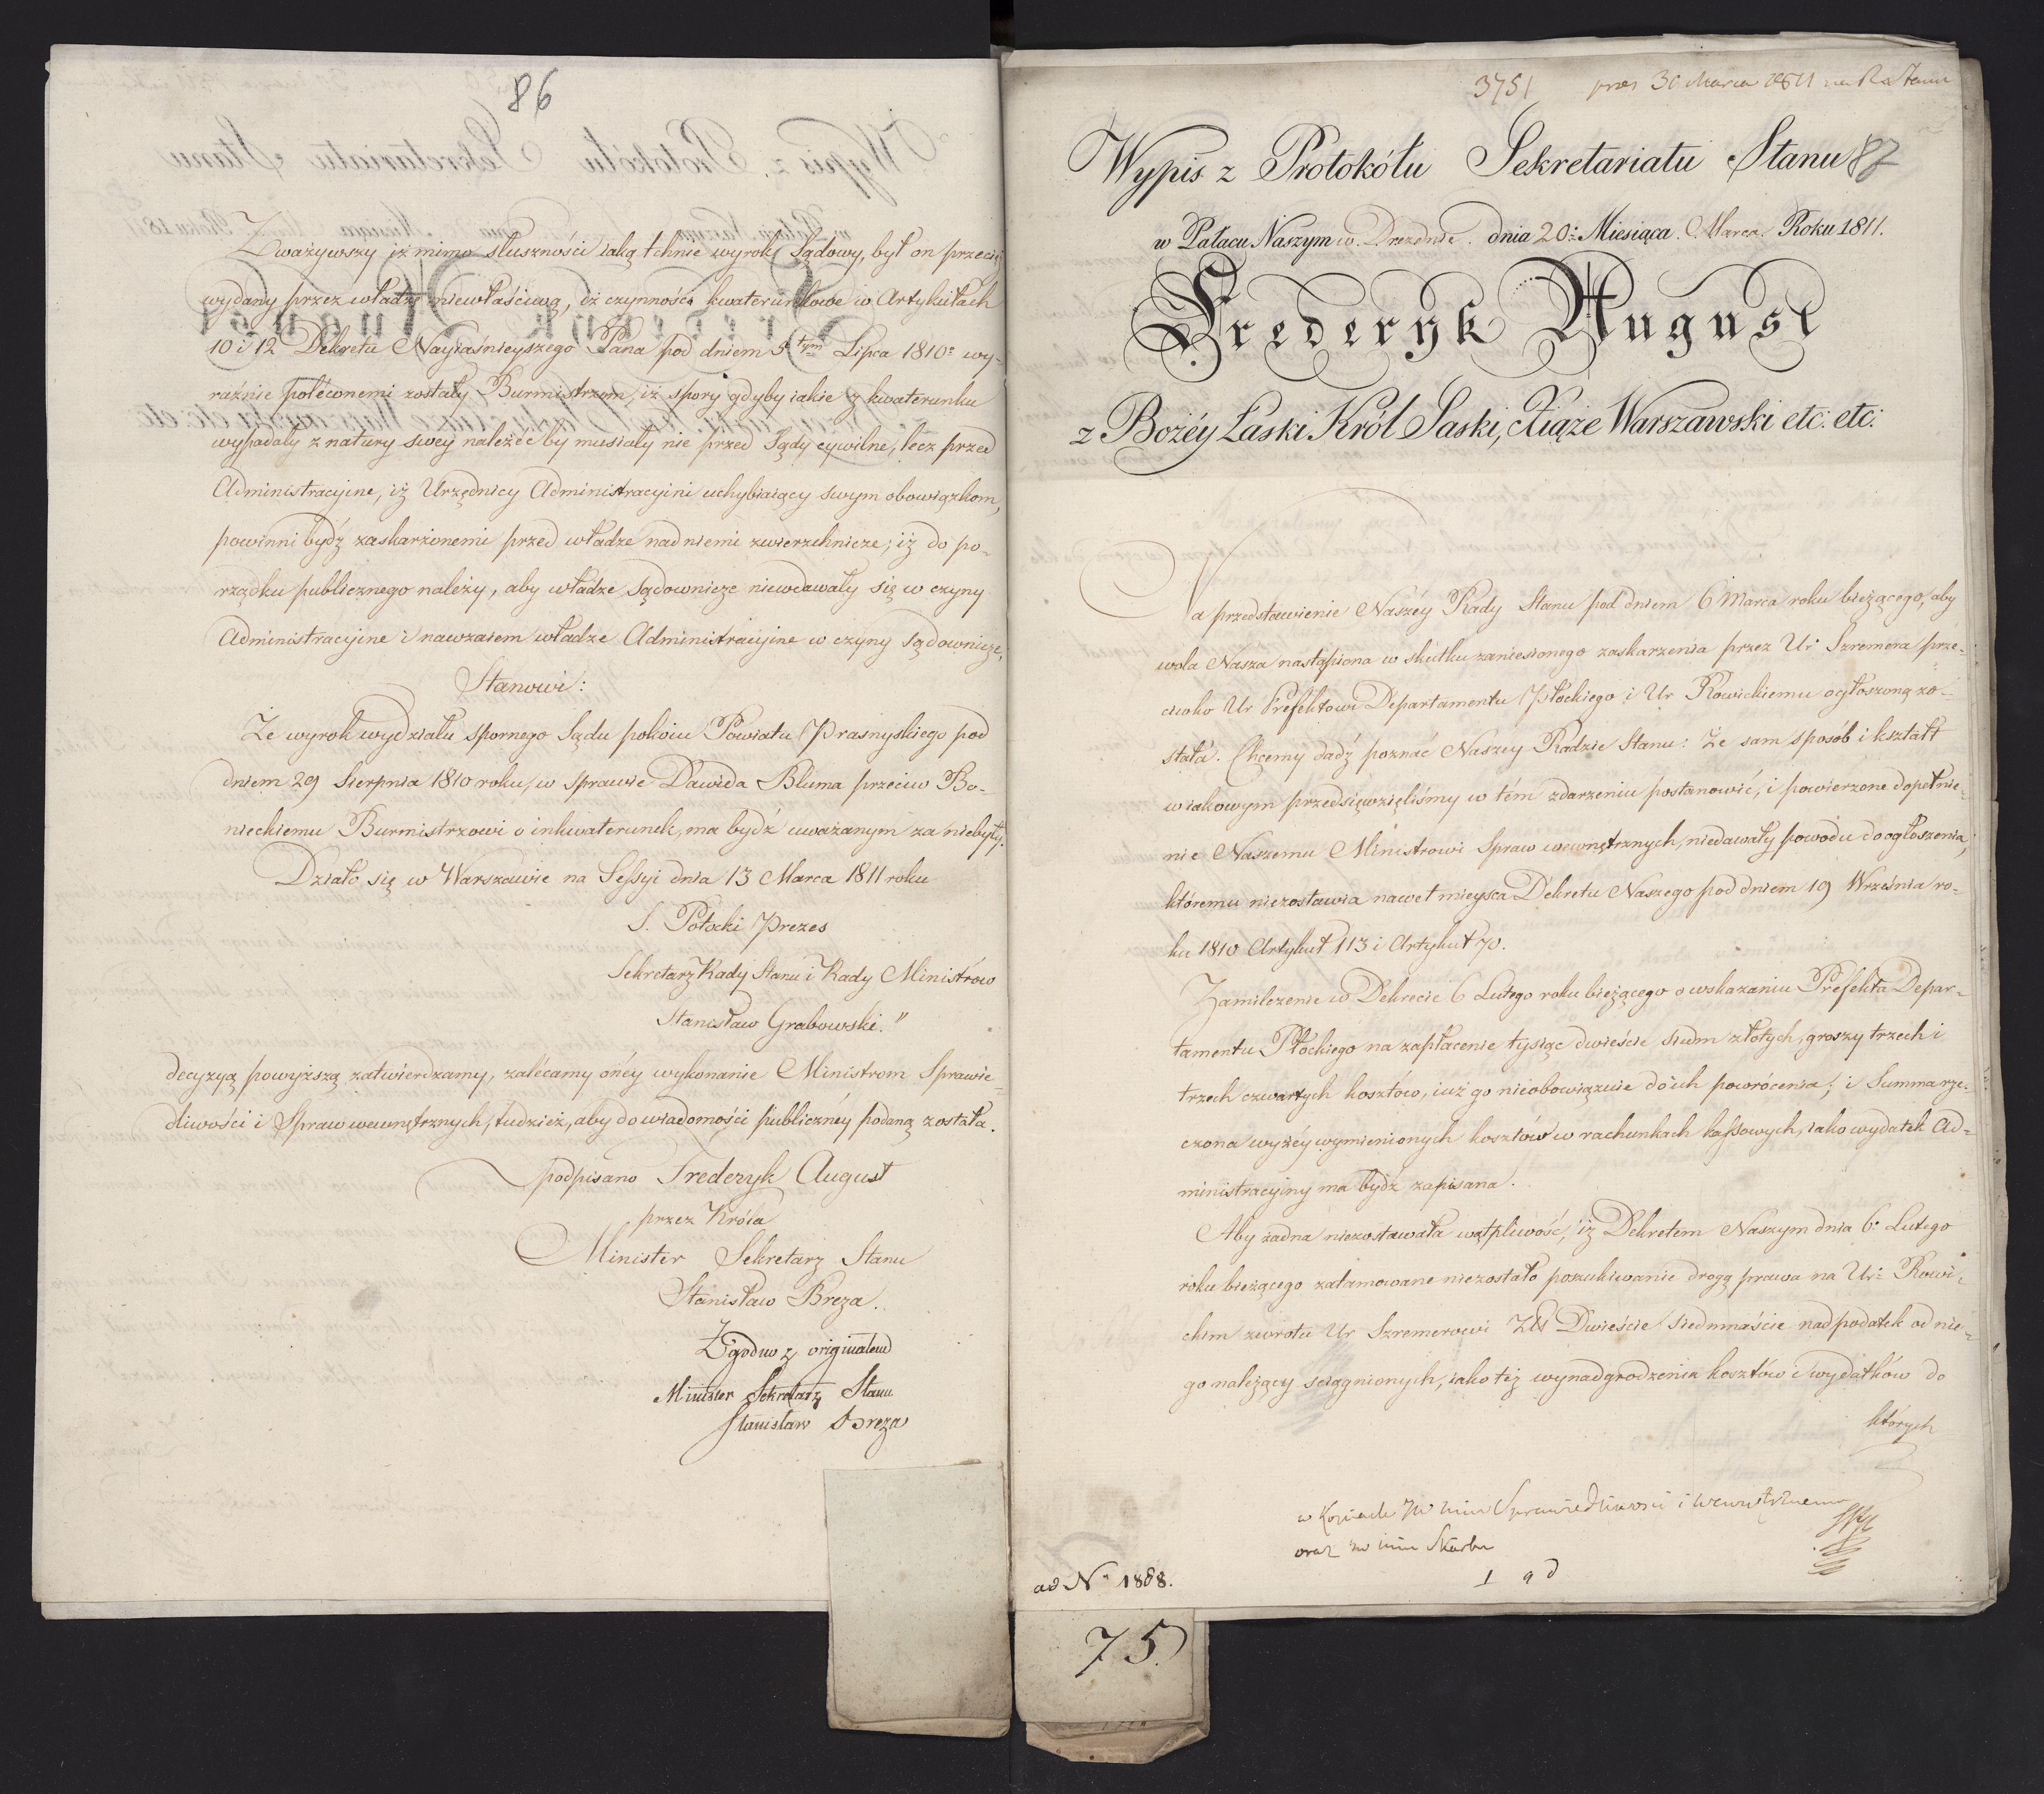 86
Zważywszy iż mimo słuszności iaką tchnie wyrok Sądowy, był on przecię
wydany przez władzę niewłaściwą, iż czynności kwaterunkowe w Artykułach
10 i 12 Dekretu Nayiaśnieyszego Pana pod dniem 5tym Lipca 1810: wy-
raźnie poleconemi zostały Burmistrzom, iż spory gdyby iakie z kwaterunku
wypadały z natury swey należeć by musiały nie przed Sądy cywilne, lecz przed
Administracyjne, iż Urzędnicy Administracyini uchybiaiący swym obowiązkom,
powinni bydź zaskarżonemi przed władze nad niemi zwierzchnicze; iż do po-
rządku publicznego należy, aby władze Sądownicze niewdawały się w czyny
Administracyjne i nawzaiem władze Administracyjne w czyny Sądownicze;
Stanowi:
Że wyrok wydziału Spornego Sądu pokoiu Powiatu Prasnyskiego pod
dniem 29 Sierpnia 1810 roku, w Sprawie Dawida Bluma przeciw Bo-
nieckiemu Burmistrzowi o inkwaterunek, ma bydź uważanym za niebyły.
Działo się w Warszawie na Sessyi dnia 13 Marca 1811 roku
S. Potocki Prezes
Sekretarz Rady Stanu i Rady Ministrów
Stanisław Grabowski."
decyzyą powyższą zatwierdzamy, zalécamy ońey wykonanie Ministrom Sprawie-
dliwości i Spraw wewnętrznych, tudzież, aby do wiadomości publicznéy podaną została.
podpisano Frederyk August
przez Króla
Minister Sekretarz Stanu
Stanisław Breza.
Zgodno z originałem
Minister Sekretarz Stanu
Stanisław Breza
3751 prez 30 Marca 1811 na Ra Stanu
Wypis z Protokółu Sekretariatu Stanu 87
w Pałacu Naszym w Dreznie. dnia 20: Miesiąca. Marca. Roku 1811.
Frederyk August
z Bożéy Łaski Król Saski, Xiąże Warszawski etc: etc:
Na przedstawienie Naszéy Rady Stanu pod dniem 6 Marca roku bieżącego, aby
wola Nasza nastąpiona w skutku zaniesionego zaskarzenia przez Ur: Szremera prze-
ciwko Ur Prefektowi Departamentu Płockiego i Ur Rowickiemu ogłoszoną zo-
stała. Chcemy dadź poznać Naszéy Radzie Stanu: Że sam sposób i kształt
w iakowym przedsięwzięliśmy w tém zdarzeniu postanowić, i powierzone dopełnie-
nie Naszemu Ministrowi Spraw wewnętrznych, niedawały powodu do ogłoszenia,
któremu niezostawia nawet mieysca Dekretu Naszego pod dniem 19 Września ro-
ku 1810 Artykuł 113 i Artykuł 70.
Zamilczenie w Dekrecie 6 Lutego roku bieżącego o wskazaniu Prefekta Depar-
tamentu Płockiego na zapłacenie tysiąc dwieście siedm złotych, groszy trzech i
trzech czwartych kosztów, iuż go nieobowiązuie do ich powrócenia; i Summa rze-
czona wyżéy wymienionych kosztów w rachunkach kassowych, iako wydatek Ad-
ministracyiny ma bydź zapisana.
Aby żadna niezostawała wątpliwość, iż Dekretem Naszym dnia 6: Lutego
roku bieżącego zatamowane niezostało poszukiwanie drogą prawa na Ur: Rowi-
ckim zwrotu Ur Szremerowi Zł Dwieście siedmnaście nad podatek od nie-
go należący sciągnionych, iako też wynadgrodzenia kosztów i wydatków do
których
w Kopiach JW Min Sprawiedliwości i wewnętrznemu
oraz JW Min Skarbu
ad No 1888.
75.